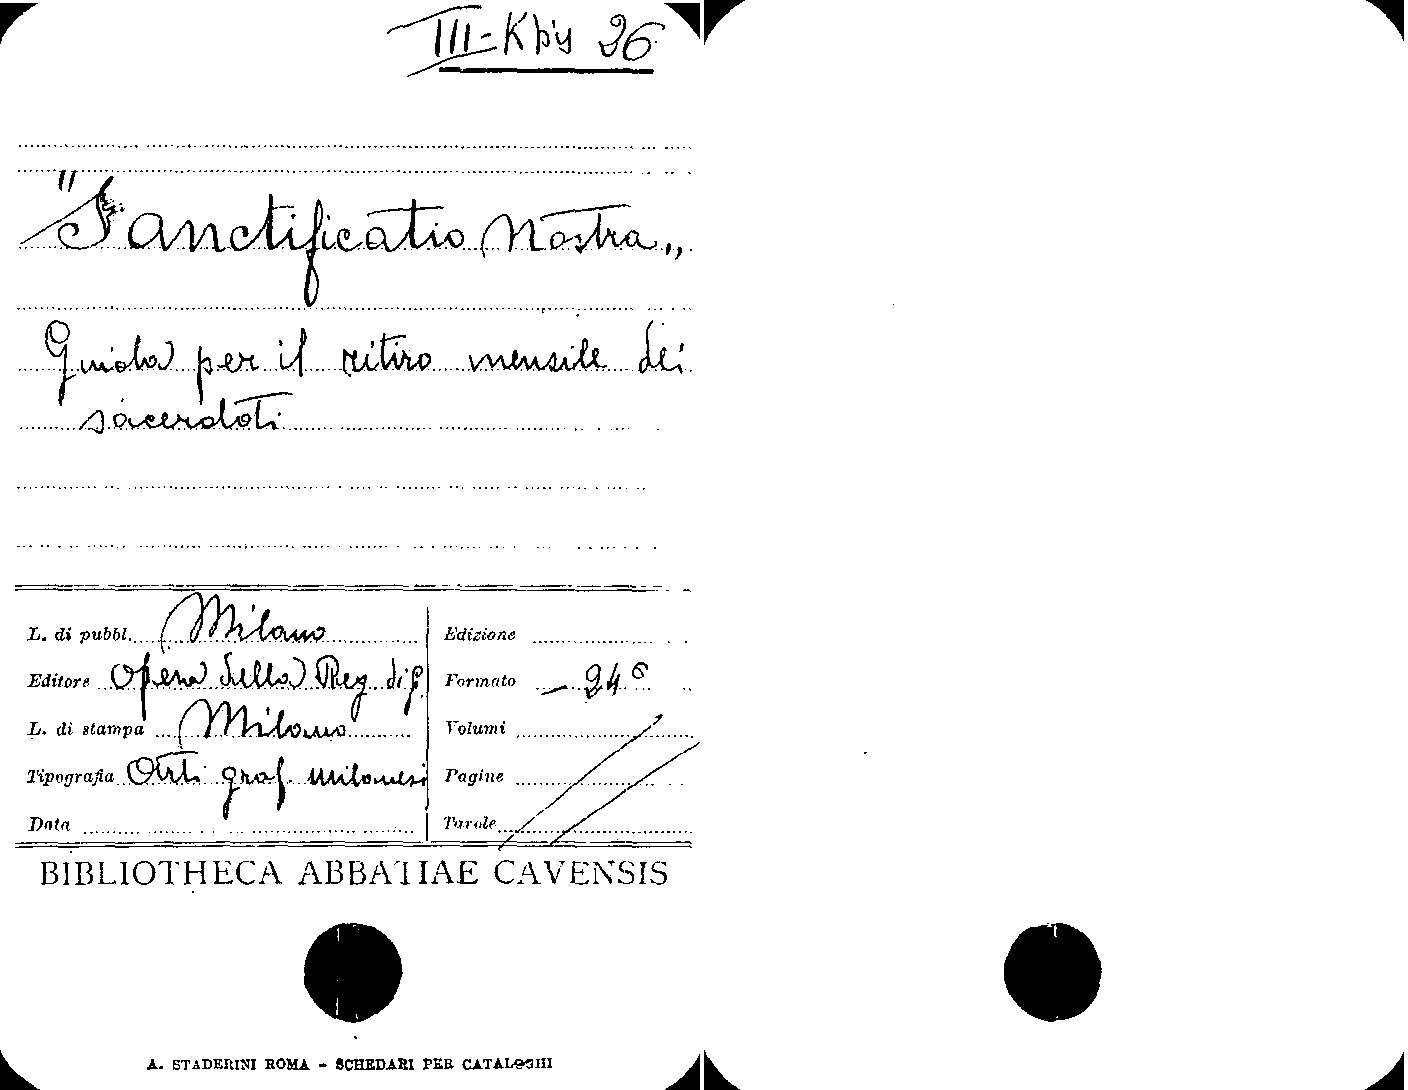 III-K bis 26
"Sanctificatio nostra„
Guida per il ritiro mensile dei
sacerdoti
L. di pubbl. Milano
Editore Opera della Reg. di
L. di stampa Milano
Tipografia Arti graf. milanesi
Data
Edizione
Formato – 24°
Volumi
Pagine
Tavole
BIBLIOTHECA ABBATIAE CAVENSIS
A. STADERINI ROMA - SCHEDARI PER CATALOGHI